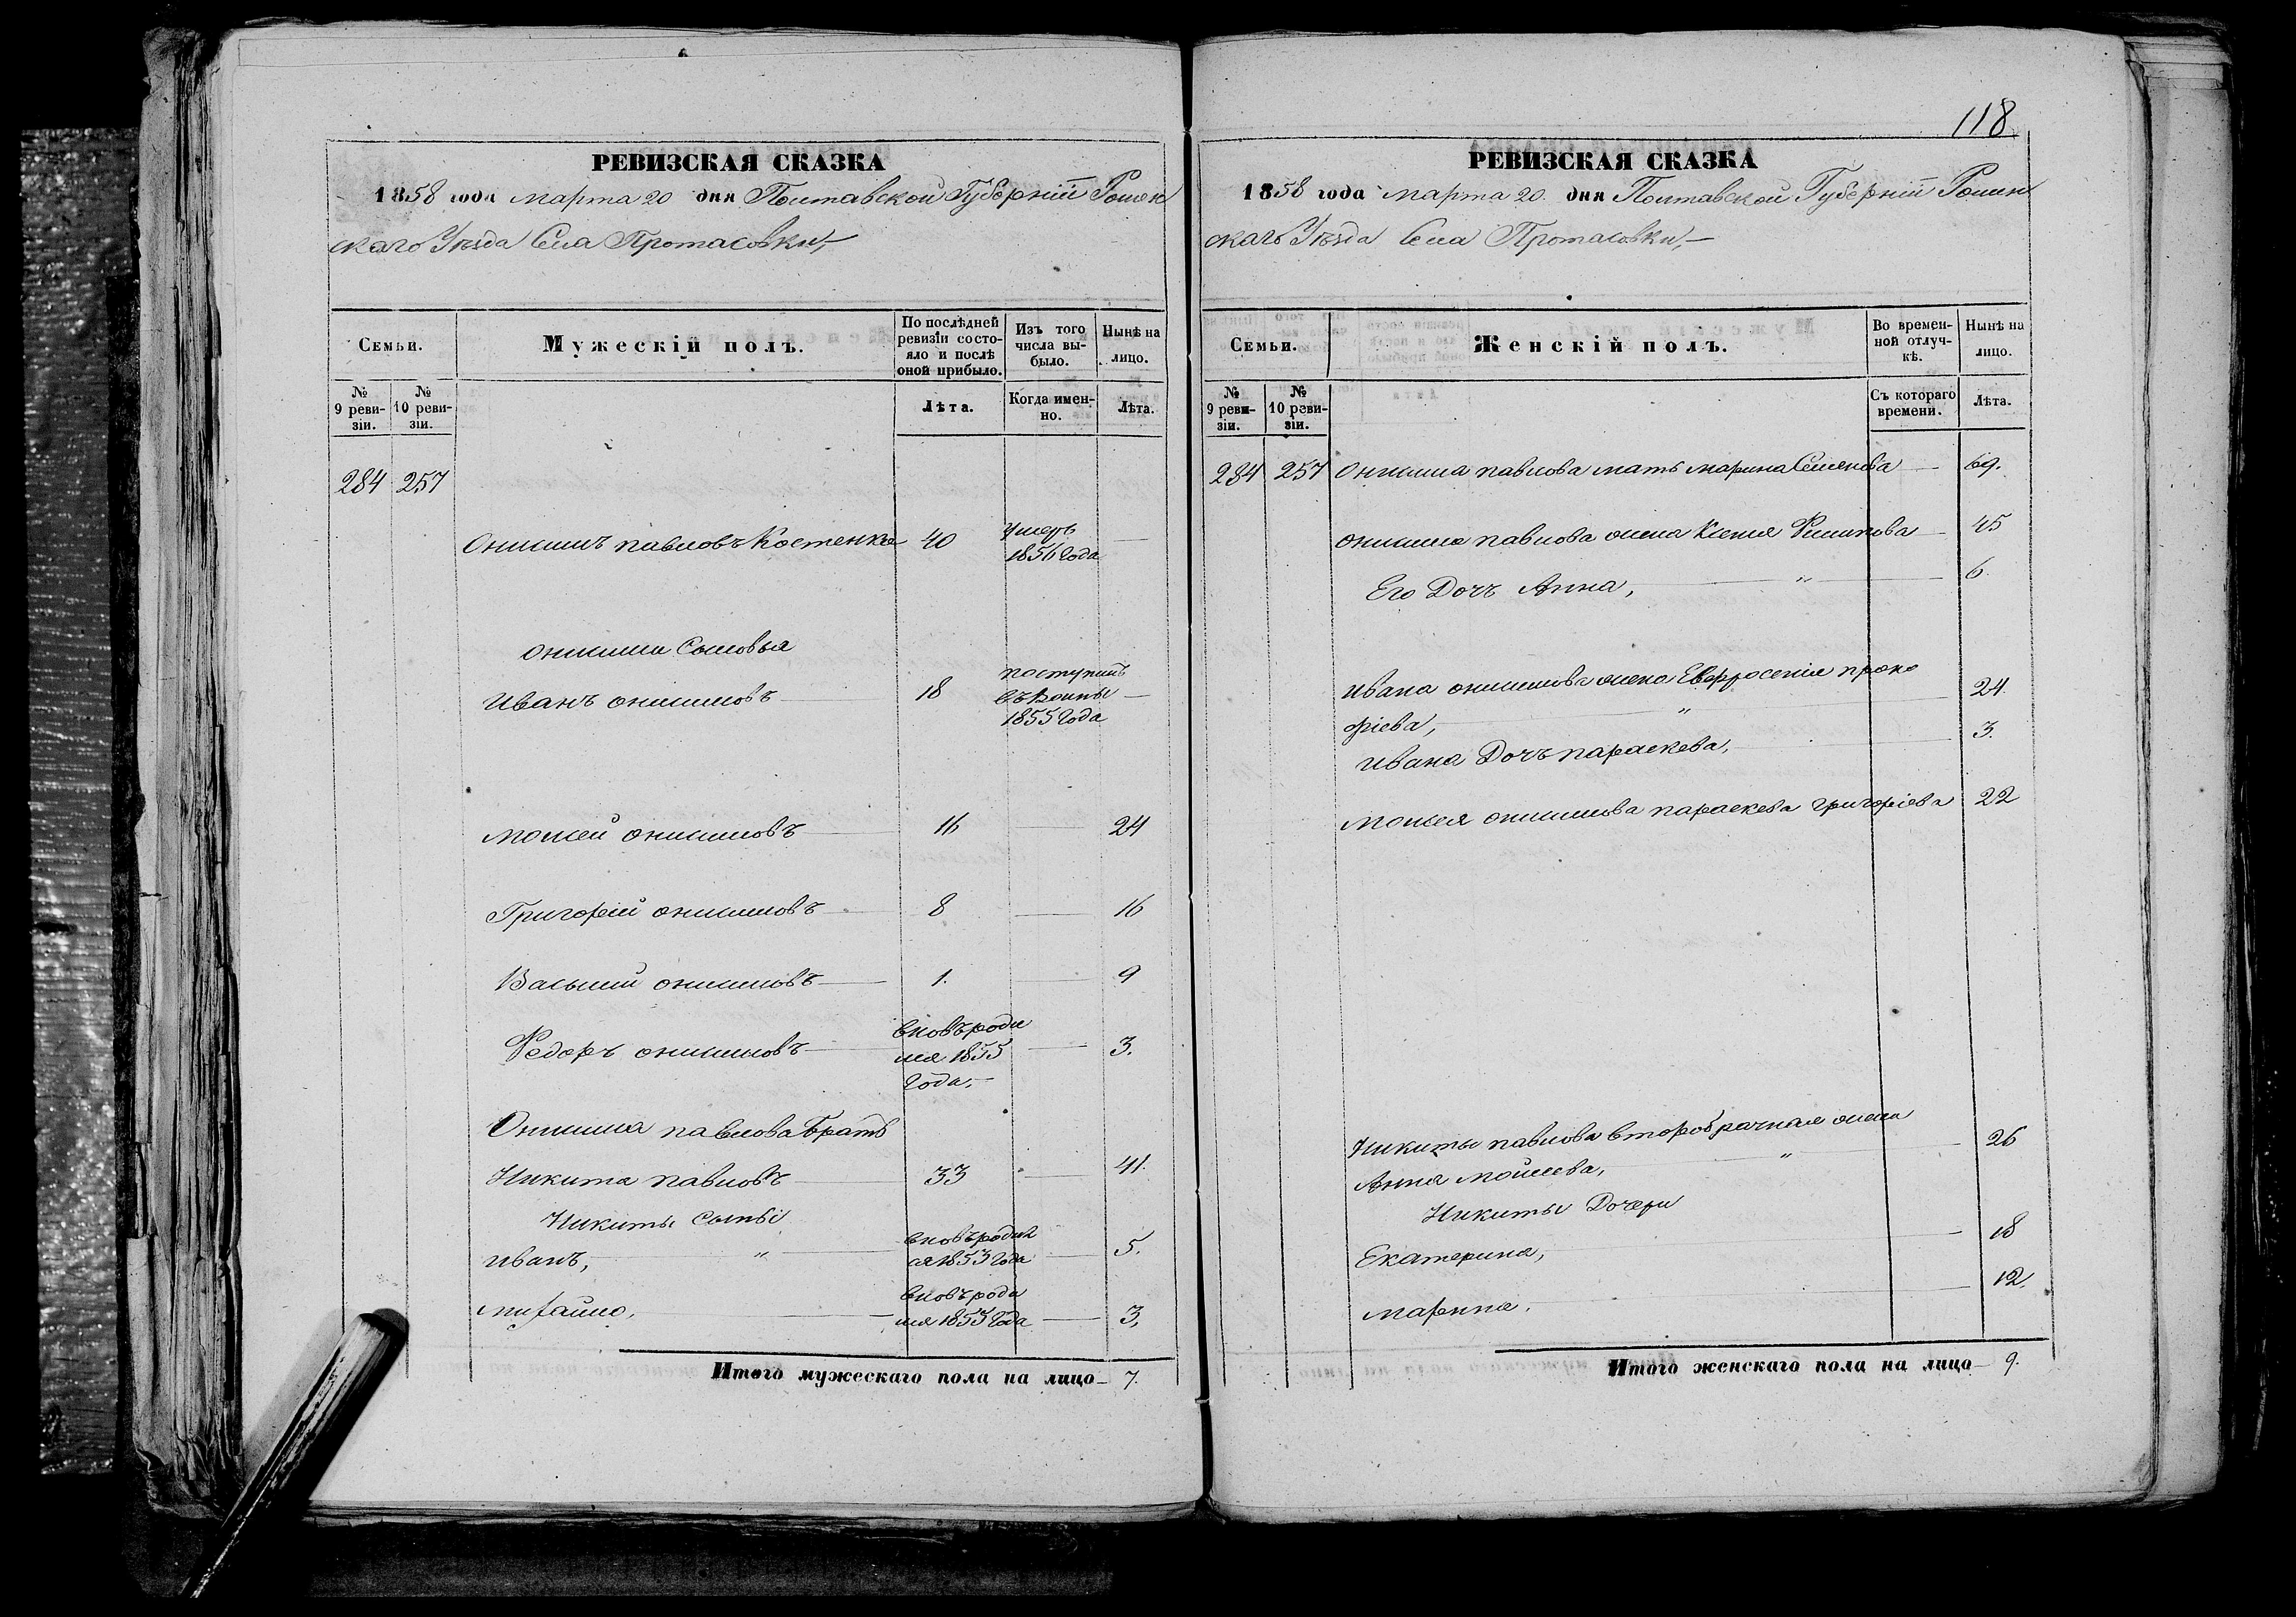 РЕВИЗСКАЯ СКАЗКА
1858 года марта 20 дня Полтавской Губерніи Ромен
скаго Уѣзда Села Протасовки,
Семьи.
Мужескій полъ.
По послѣдней ревизіи состояло и послѣ оной прибыло.
Изъ того числа выбыло.
Нынѣ на лицо.
№ 9 ревизіи.
№ 10 ревизіи.
Лѣта.
Когда именно.
Лѣта.
284 257
Онисимъ павловъ Костенко 40 умеръ
1856 года
онисима Сыновья
Иванъ онисимовъ 18 поступилъ
въ воины
1855 года
моисей онисимовъ 16 24
Григорій онисимовъ 8 16
Василій онисимовъ 1. 9
Федоръ онисимовъ вновь роди
лся 1855
года. 3.
Онисима павлова братъ
Никита павловъ 33 41.
Никиты Сыны
иванъ, " вновь родил
ся 1853 года 5.
михайло, вновь роди
лся 1855 года 3,
Итого мужескаго пола на лицо 7.
118
РЕВИЗСКАЯ СКАЗКА
1858 года марта 20. дня Полтавской Губерніи Ромен
скаго Уѣзда Села Протасовки,
Семьи.
Женскій полъ.
Во временной отлучкѣ.
Нынѣ на лицо.
№ 9 ревизіи.
№ 10 ревизіи.
Съ котораго времени.
Лѣта.
284 257 Онисима павлова мать марина Семенова 69.
онисима павлова жена Ксенія Филипова 45
Его Дочь Анна, " 6.
ивана онисимова жена Евфросенія проко
фіева, " 24.
ивана Дочь параскева, 3.
моисея онисимова параскева григоріева 22
Никиты павлова второбрачная жена
Анна мойсеева, " 26
Никиты Дочери
Екатерина, 18
марина. 12.
Итого женскаго пола на лицо 9.